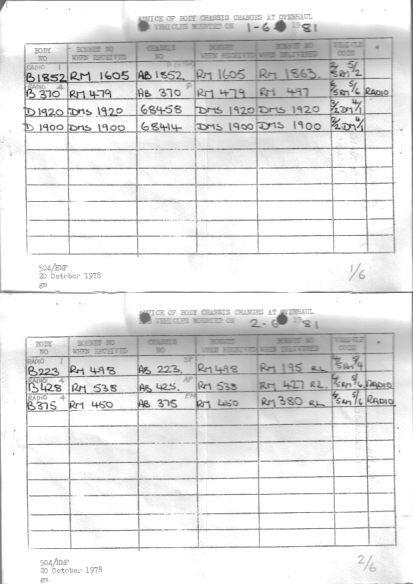 ADVICE OF BODY CHASSIS CHANGES AT OVERHAUL
VEHICLES MOUNTED ON 1-6 1981
BODY NO BONNET NO WHEN RECEIVED CHASSIS NO BONNET WHEN RECEIVED BONNET NO WHEN DELIVERED VEHICLE CODE
RADIO 1
B1852 RM 1605 AB 1852 RM 1605 RM 1863
RADIO 4
B 370 RM 479 AB 370 RM 479 RM 497 RADIO
D 1920 DMS 1920 68458 DMS 1920 DMS 1920
D 1900 DMS 1900 68414 DMS 1900 DMS 1900
504/HMP
20 October 1978
gs
1/6
ADVICE OF BODY CHASSIS CHANGES AT OVERHAUL
VEHICLES MOUNTED ON 2-6 1981
BODY NO BONNET NO WHEN RECEIVED CHASSIS NO BONNET WHEN RECEIVED BONNET NO WHEN DELIVERED VEHICLE CODE
RADIO 1 SP
B223 RM 498 AB 223. RM 498 RM 195 RL
RADIO 4
B428 RM 538 AB 425. RM 538 RM 427 RL. RADIO
RADIO 4
B375 RM 450 AB 375 RM 450 RM 380 RL RADIO
504/HMP
20 October 1978
gs
2/6